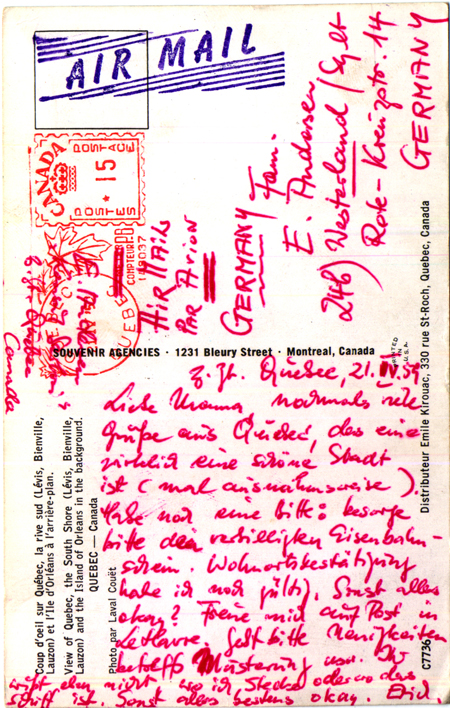 AIR MAIL
CANADA
POSTAGE
15
POSTES
COMPTEUR
QUEBEC
AIR MAIL
PAR AVION
GERMANY
Fam.
E. Andresen
24b) Westerland / Sylt
Rote-Kreuzstr. 14
GERMANY
Canada
SOUVENIR AGENCIES · 1231 Bleury Street · Montreal, Canada
PRINTED IN U.S.A.
Distributeur Emile Kirouac, 330 rue St-Roch, Quebec, Canada
C7736
Coup d'oeil sur Québec, la rive sud (Lévis, Bienville,
Lauzon) et l'Ile d'Orléans à l'arrière-plan.
View of Quebec, the South Shore (Lévis, Bienville,
Lauzon) and the Island of Orleans in the background.
QUEBEC — Canada
Photo par Laval Couët
z. Zt. Quebec, 21. 59
Liebe Mamma, nochmals viele
Grüße aus Quebec, das eine
wirklich eine schöne Stadt
ist (mal ausnahmsweise).
Habe noch eine Bitte: besorge
bitte den verbilligten Eisenbahn-
schein. Wohnortsbestätigung
habe ich noch gültig. Sonst alles
okay? Freue mich auf Post in
LeHavre. Gebt bitte Neuigkeiten
Musterung usw. Ihr
wißt eben nicht wo ich stecke oder wo das
Schiff ist. Sonst alles bestens okay. Erich.